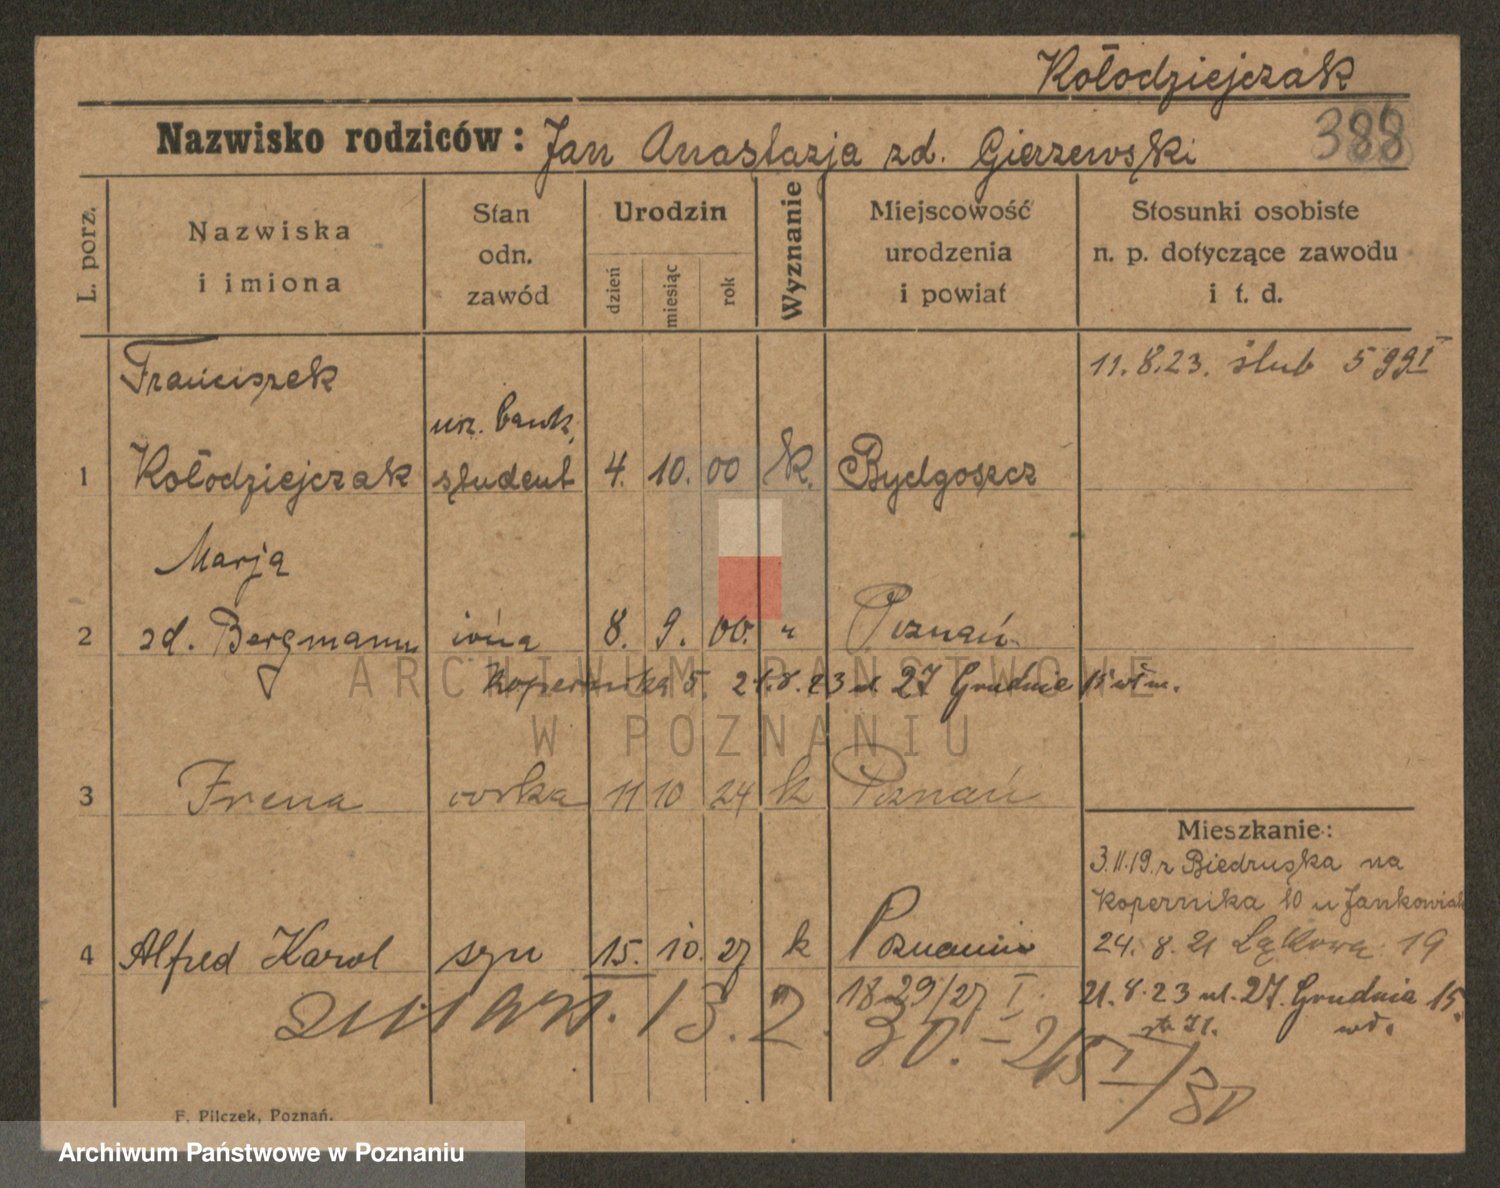 Kołodziejczak
Nazwisko rodziców: Jan Anastazja zd. Gierzewski
388
L. porz.
Nazwiska
i imiona
Stan
odn.
zawód
Urodzin
dzień
miesiąc
rok
Wyznanie
Miejscowość
urodzenia
i powiat
Stosunki osobiste
n. p. dotyczące zawodu
i t. d.
Franciszek
11. 8. 23. ślub 599 I
urz. bank.
1 Kołodziejczak student 4. 10. 00 k. Bydgoszcz
Marja
2 zd. Bergmann 8. 9. 00. " Poznań
Kopernika 5. 21. 8. 23 ul. 27 Grudnia 15
ARCHIWUM PAŃSTWOWE
W POZNANIU
3 Irena corka 11 10 24 k Poznań
Mieszkanie:
3. 11. 19. z Biedruska na
Kopernika 10 u Jankowiak
4 Alfred Karol syn 15. 10. 27 k Poznaniu
24. 8. 21 Łąkowa 19
1829/27 I
21. 8. 23 ul. 27. Grudnia 15.
wł.
zmarł. 13. 2. 30. - 215 I/30
F. Pilczek, Poznań.
Archiwum Państwowe w Poznaniu